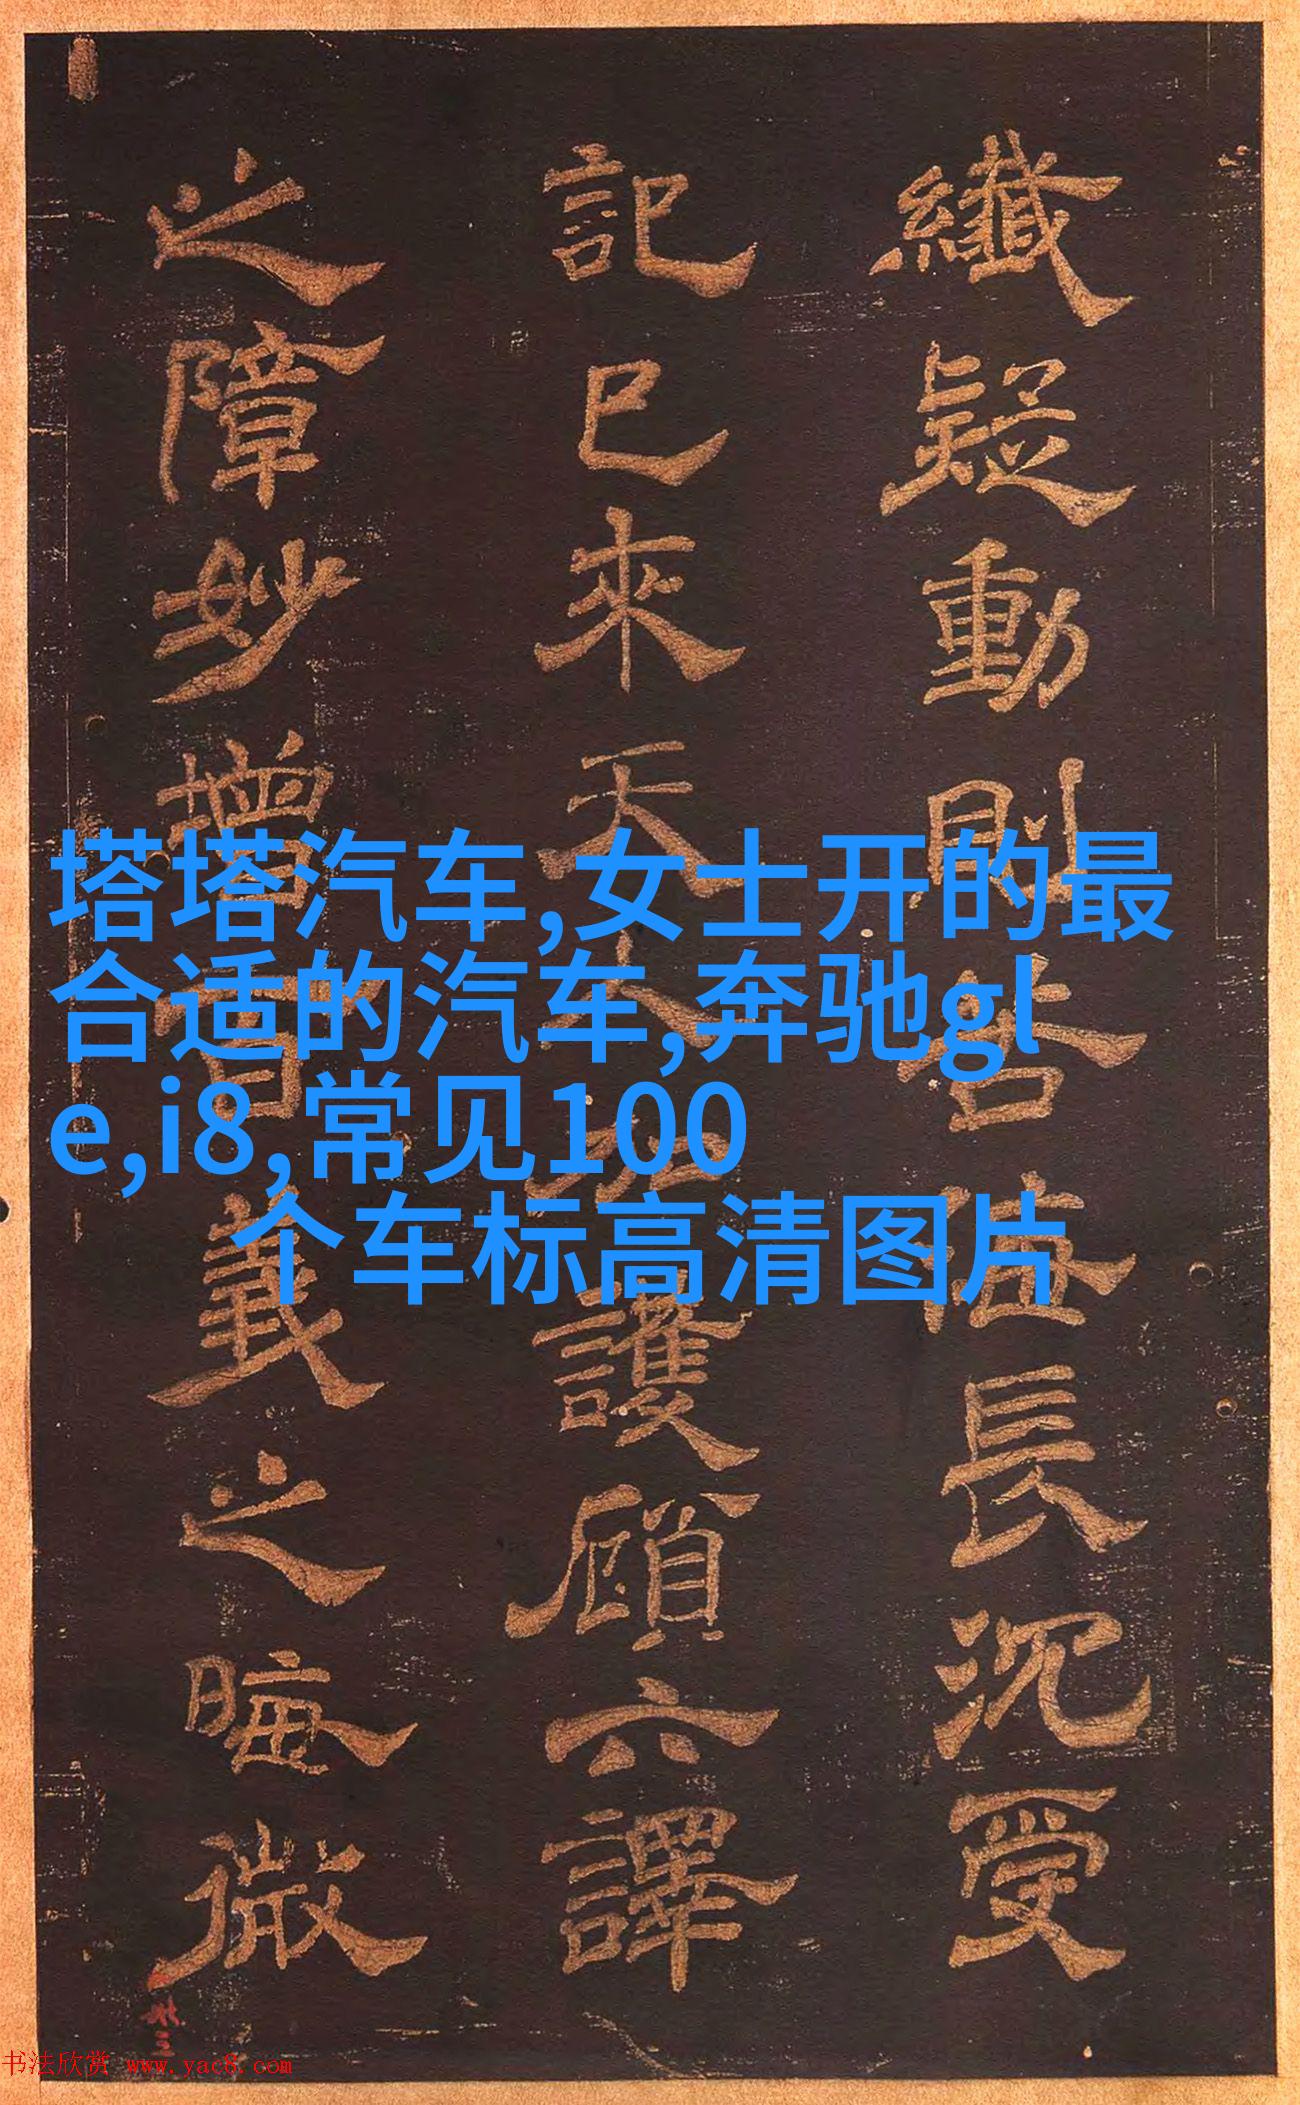 纖疑動則皆長沉受
記已來天人護顧六譯
之障妙增義之晦微
塔塔汽车,女士开的最
合适的汽车,奔驰gl
e,i8,常见100
个车标高清图片
书法欣赏 www.yac8.com